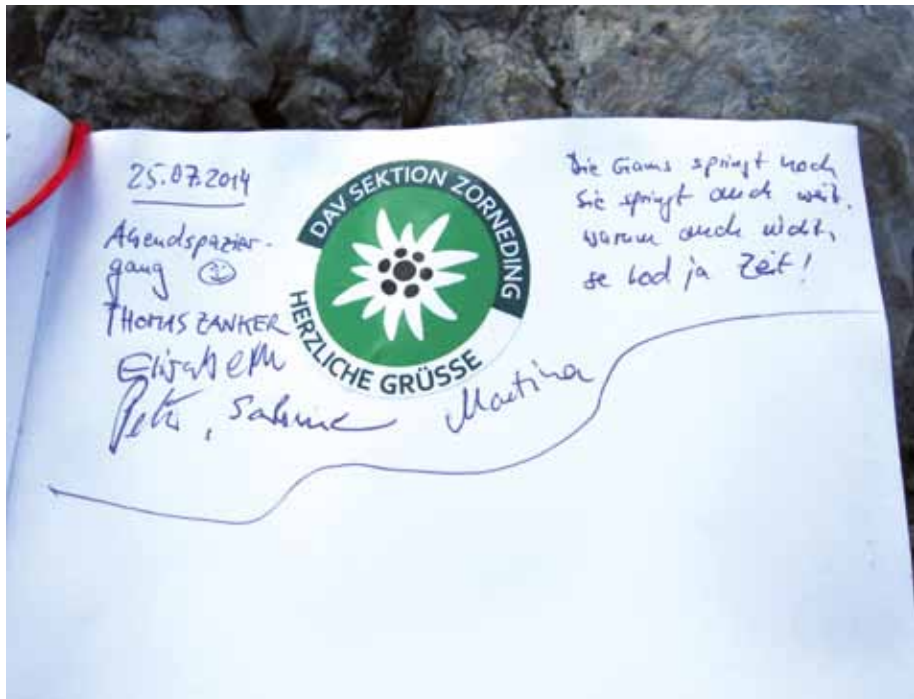 25.07.2014
Abendspazier-
gang
THOMAS ZANKER
Elisabeth
Peter, Sabine Martina
DAV SEKTION ZORNEDING
HERZLICHE GRÜSSE
Die Gams springt hoch
Sie springt auch weit,
warum auch nicht,
se hod ja Zeit!